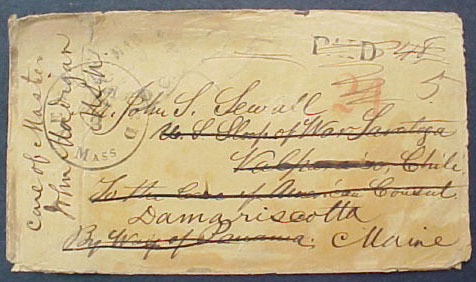 PAID 48
5
MASS
John S. Sewall
U.S. Sloop of War Saratoga
Valparaiso, Chile
To the Care of American Consul
Damariscotta
By Way of Panama. Maine
care of Master
John Madigan